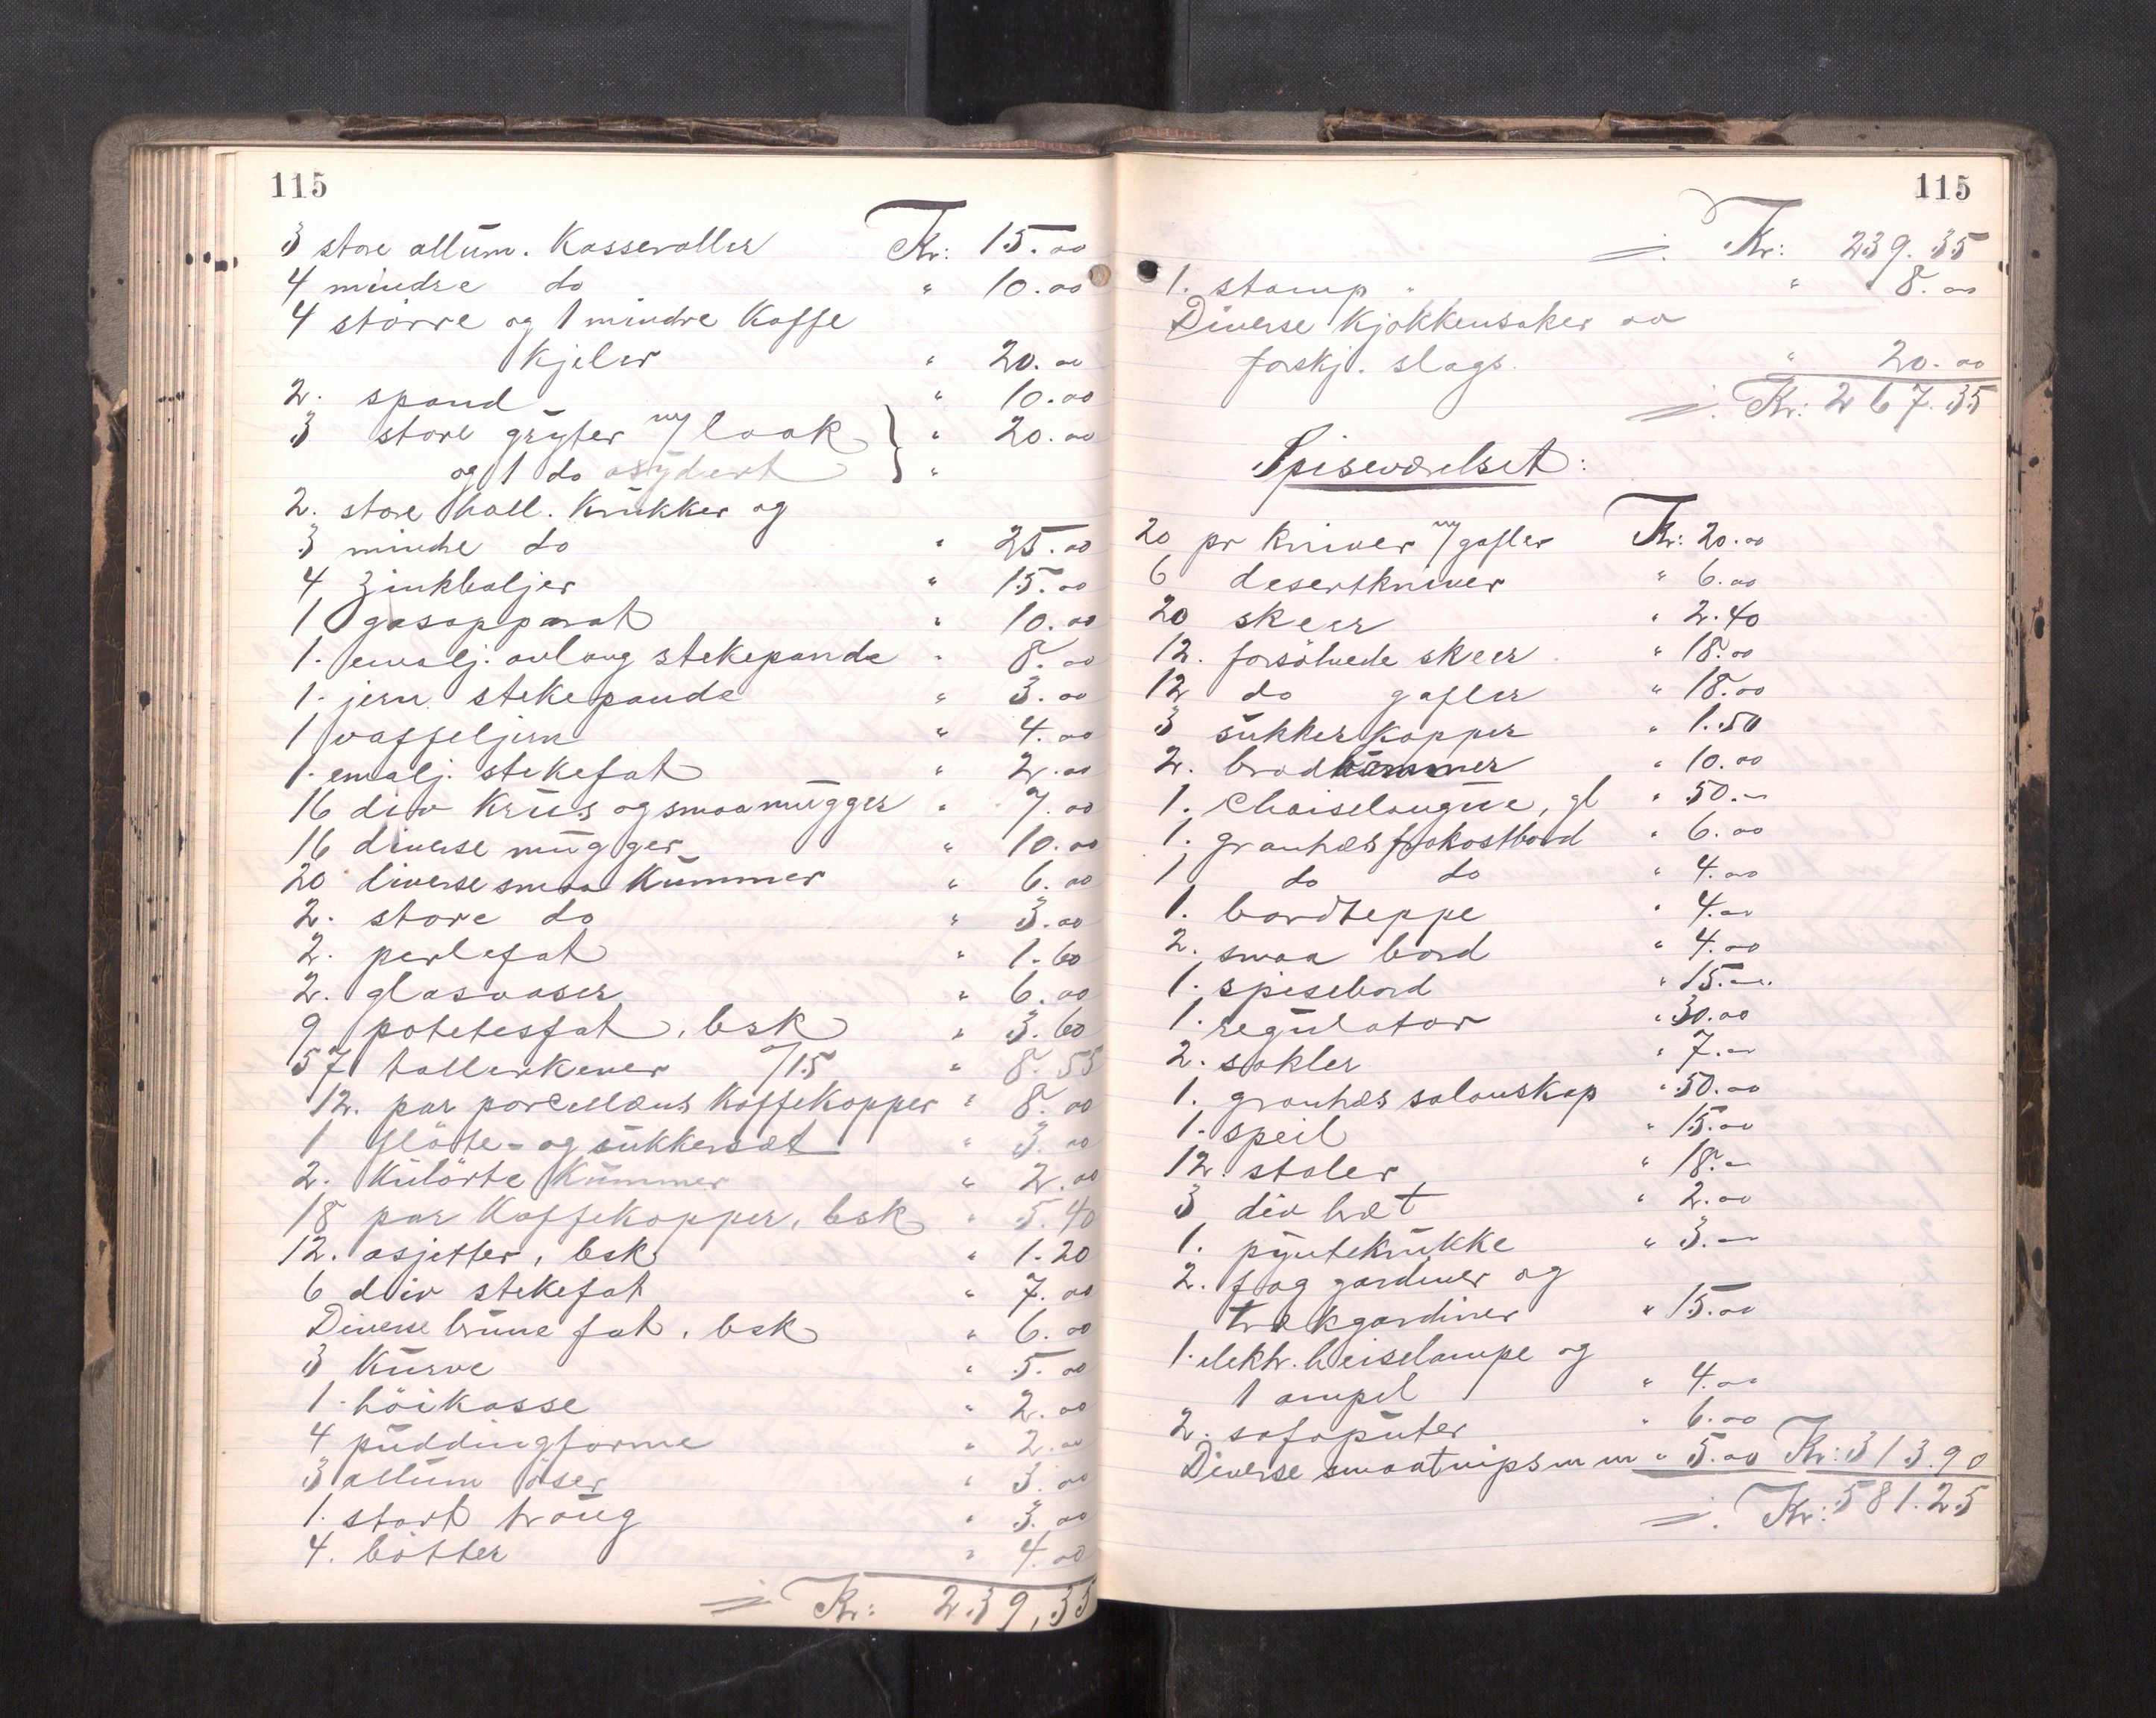 115
3 store allum. Kasseroller Kr: 15.00
4 mindre do " 10.00
4 större og 1 mindre Kaffe
kjeler " 20.00
2. spand " 10.00
3 store gryter m/ laak } " 20.00
og 1 do oxydert "
2. store holl. Krükker og
3 mindre do " 25.00
4 zinkbaljer " 15.00
1 gasapparat " 10.00
1. emalj. avlang stekepande " 8.00
1. jern stekepande " 3.00
1 vaffeljern " 4.00
1. emalj. stekefat " 2.00
16 div Krüs og smaamügger " 7.00
16 diverse mügger " 10.00
20 diverse smaa Kümmer " 6.00
2. store do " 3.00
2. perlefat " 1.60
2. glasvaser " 6.00
9 potetesfat, bsk " 3.60
57 tallerkener a/15 " 8.55
12. par porcellæns Kaffekopper " 8.00
1 flöte- og sükkersæt " 3.00
2. Külörte Kümmer " 2.00
18 par Kaffekopper, bsk " 5.40
12. asjetter, bsk " 1.20
6 div stekefat " 7.00
Diverse brüne fat, bsk " 6.00
3 Kürve " 5.00
1. höikasse " 2.00
4 püddingforme " 2.00
3 allüm öser " 3.00
1. stort traüg " 3.00
4. bötter " 4.00
Kr: 239,35
115
Kr: 239.35
1. stamp " 8.00
Diverse Kjøkkensaker av
forskj. slags. " 20.00
Kr: 267.35
Spiseværelset:
20 pr Kniver m/gafler Kr: 20.00
6 desertkniver " 6.00
20 skeer " 2.40
12. forsölvede skeer " 18.00
12 do gafler " 18.00
3 sükkerkopper " 1.50
2. brød " 10.00
1. Chaiselongüe, gl " 50.00
1. granhæs frokostbord " 6.00
1 do do " 4.00
1. bordteppe " 4.00
2. smaa bord " 4.00
1. spisebord " 15.00
1. regülator " 30.00
2. søkler " 7.00
1. granhæs salonskap " 50.00
1. speil " 15.00
12. stoler " 18.00
3 div bræt " 2.00
1. pyntekrükke " 3.00
2. fag gardiner og
trækgardiner " 15.00
1. elektr. heiselampe og
1 ampel " 4.00
2. sofapüter " 6.00
Diverse smaatnips m m " 5.00 Kr: 313.90
Kr: 581.25